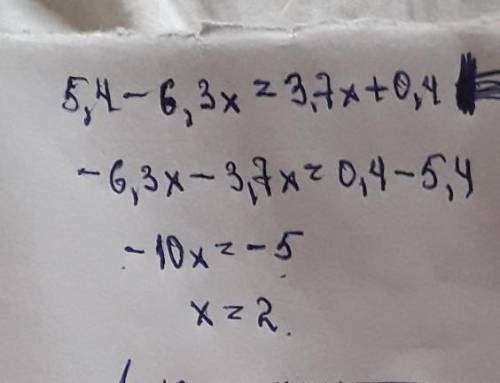 5,4 - 6,3x = 3,7x + 0,4
- 6,3x - 3,7x = 0,4 - 5,4
- 10x = - 5
x = 2.